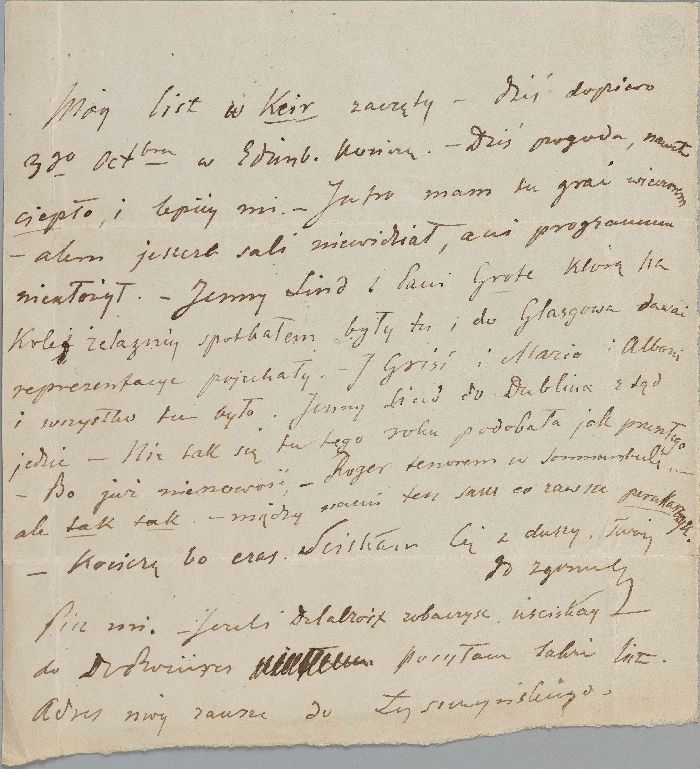 Mój list w Keir zaczęty – dziś dopiero
3go Octbra w Edinb. kończę. – Dziś pogoda, nawet
ciepło, i lepiej mi. – Jutro mam tu grać wieczorem
– alem jeszcze sali niewidział, ani programmu
nieułożył. – Jenny Lind i Pani Grote którą na
Kolei żelaznej spotkałem były tu i do Glasgowa dawać
reprezentacye pojechały. – I Grisi i Mario i Alboni
i wszystko tu było. Jenny Lind do Dublina ztąd
jedzie – Nie tak się tu tego roku podobała jak przeszłego
– Bo już nienowość, – Roger tenorem w Sonnambuli –
ale tak tak. – między nami ten sam co zawsze perukarczyk.
– Kończę bo czas. Ściskam Cię z duszy. Twój
do zgonu
Pisz mi. – Jeżeli Delacroix zobaczysz uściskaj
do De Rozières posyłam także list.
Adres mój zawsze do Łyszczyńskiego.